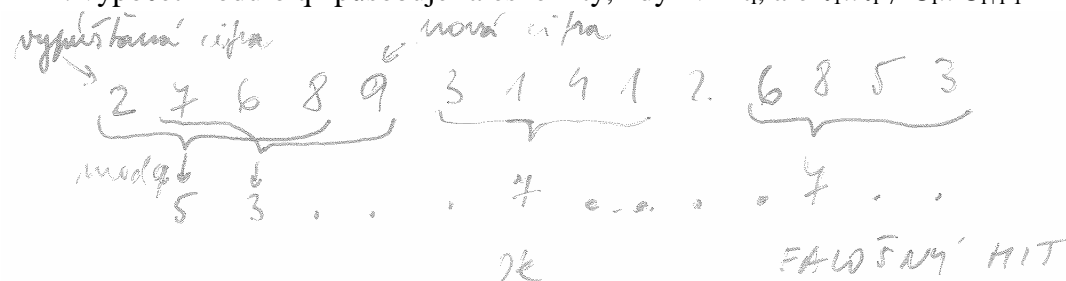 vypúšťaná cifra nová cifra
2 7 6 8 9 3 1 4 1 2. 6 8 5 3
mod q
5 3 . . . 7 . . . . . 7 . .
OK FALOŠNÝ HIT